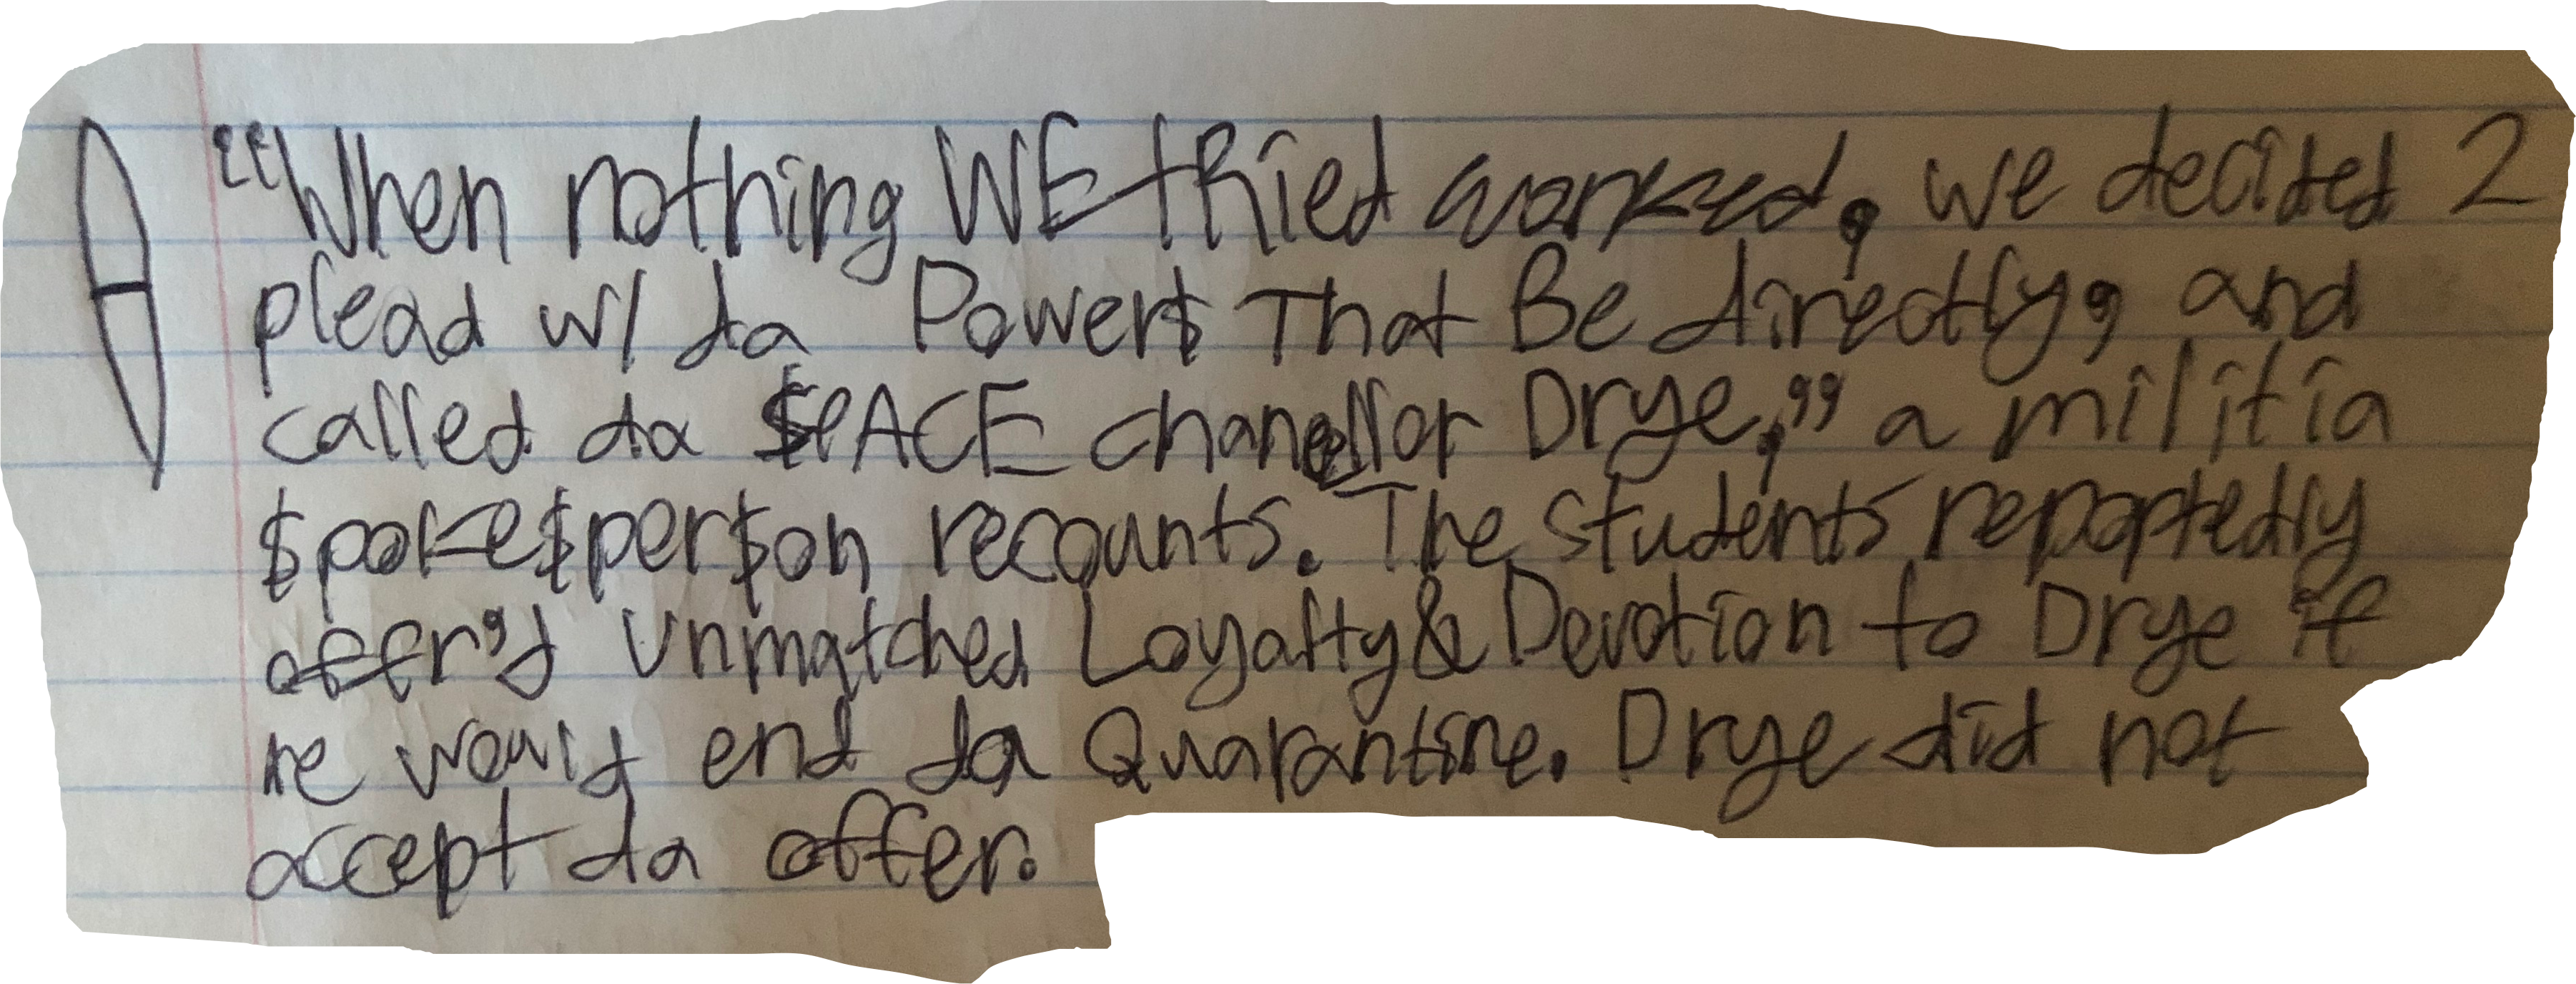 “When nothing WE tRied worked, we decided 2
plead w/ da Power$ That Be directly, and
called da $PACE chancellor Drye,” a militia
$poke$per$on recounts. The students reportedly
offer'd Unmatched Loyalty & Devotion to Drye if
he would end da Quarantine. Drye did not
accept da offer.